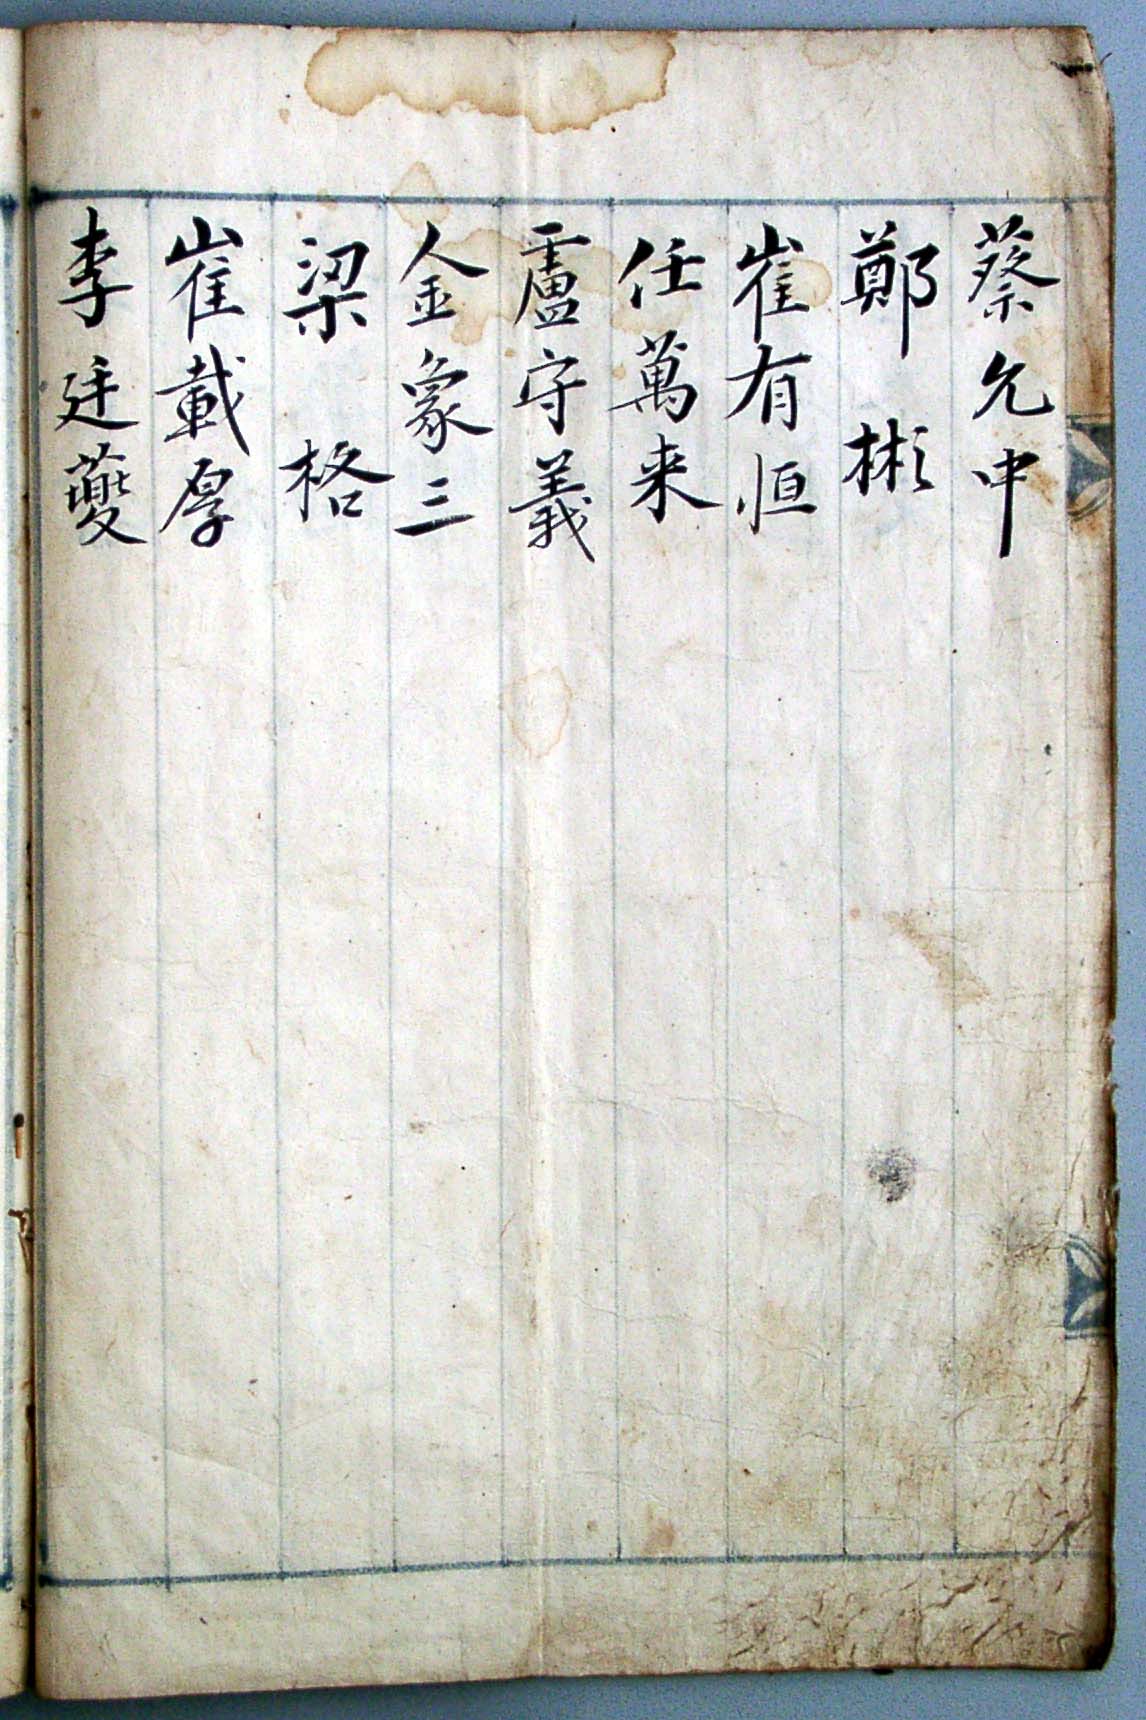 蔡允中
鄭彬
崔有恒
任萬来
盧守義
金象三
梁格
崔載厚
李廷夔